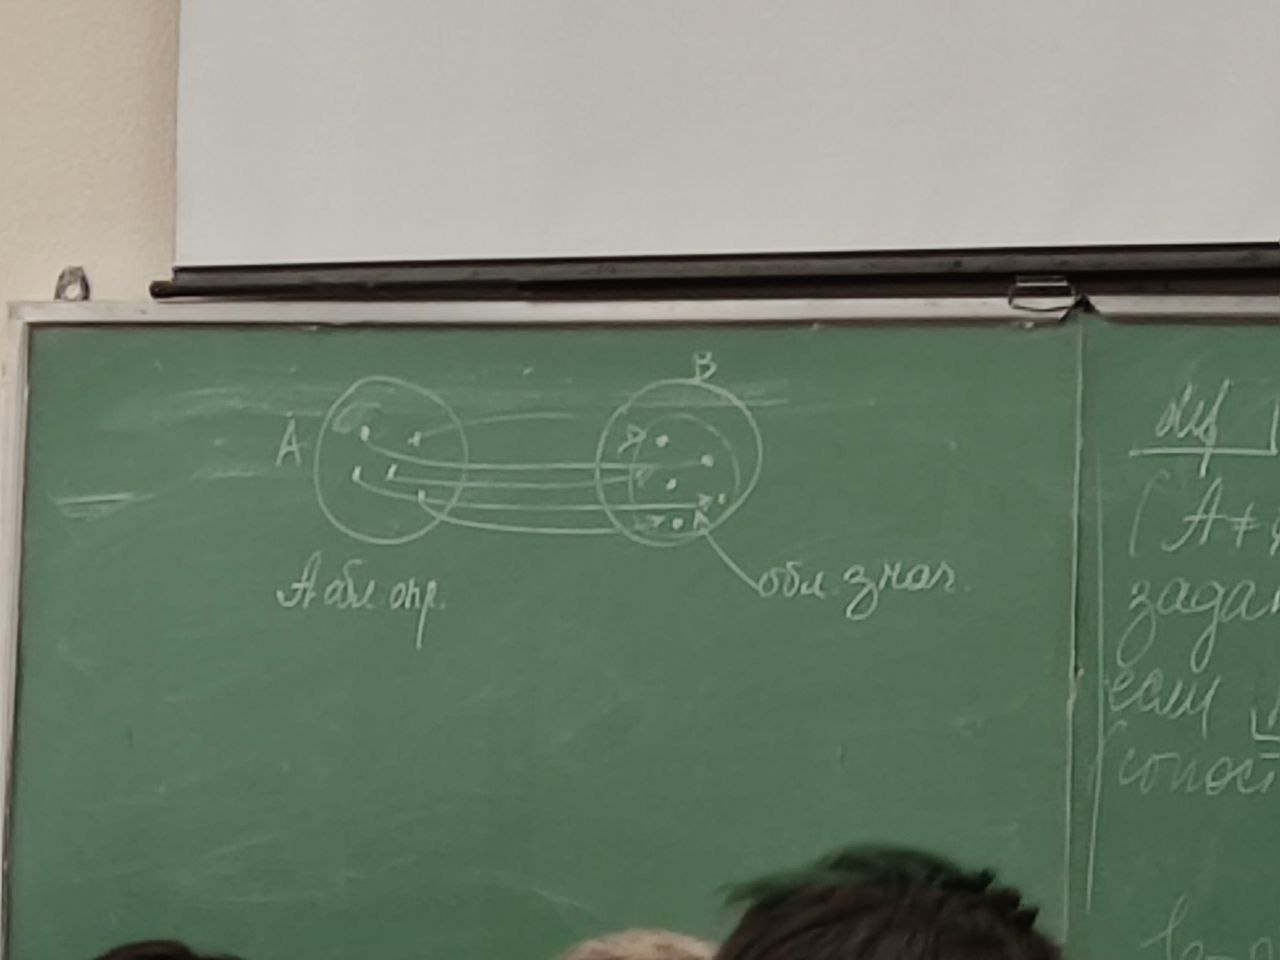 B
A
A обл. опр.
обл. знач.
def
( A ≠
задан
если
сопост